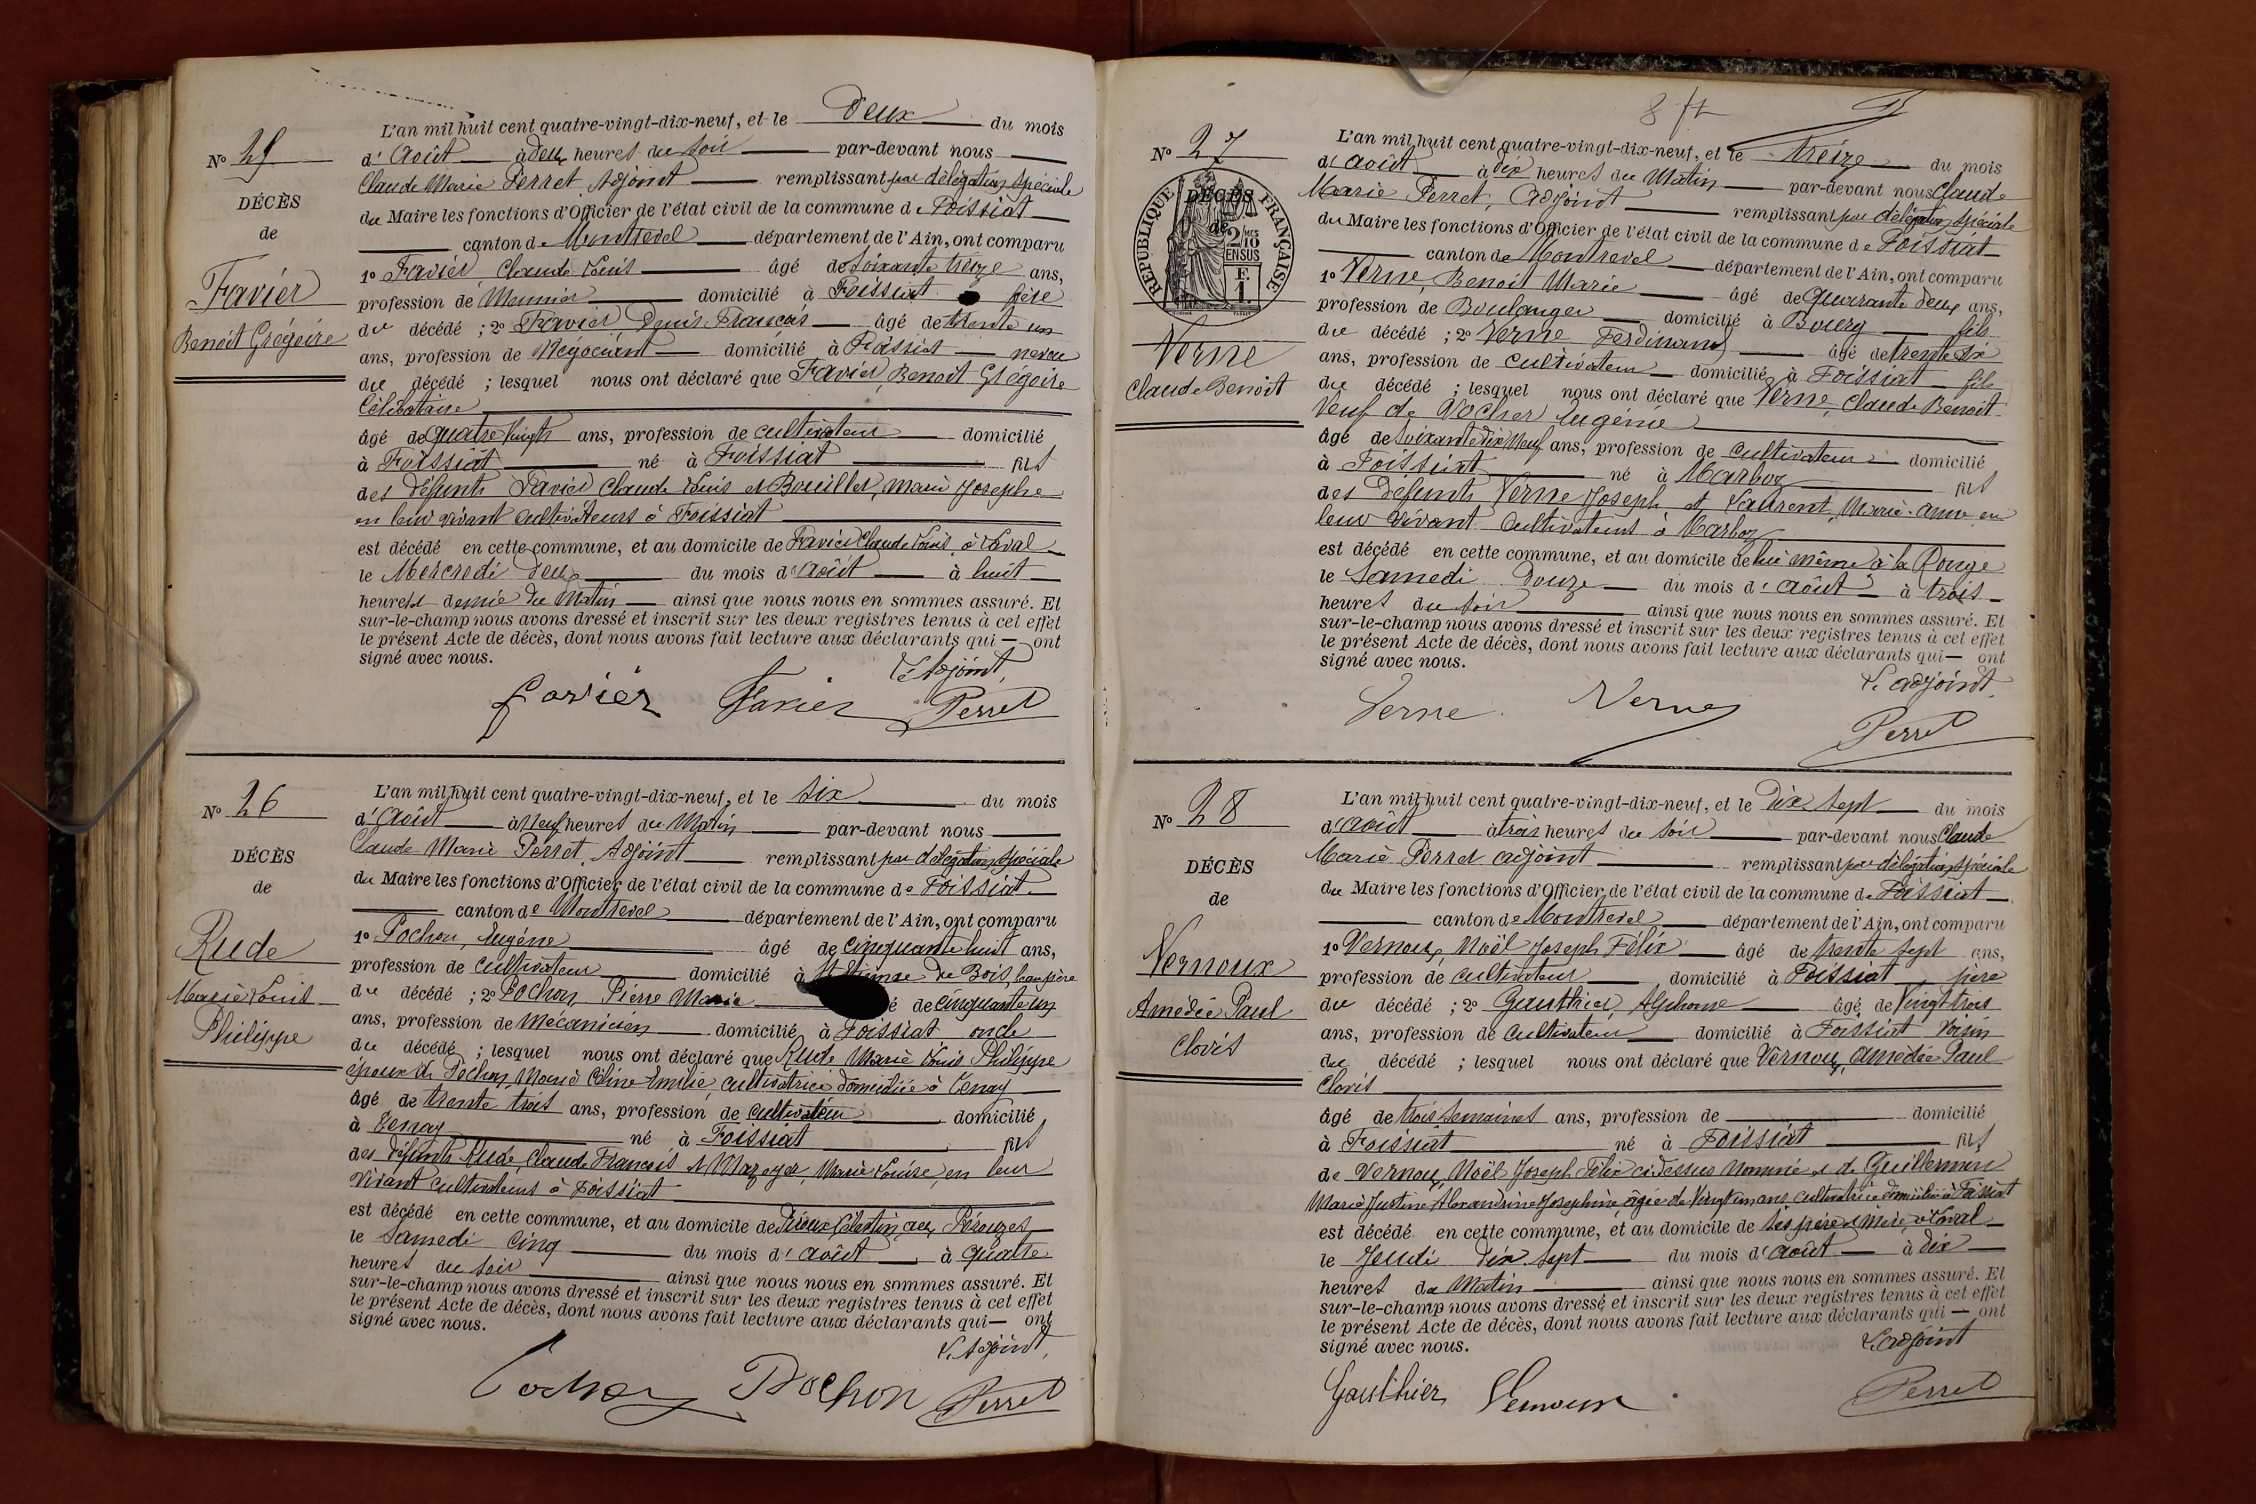 N° 25
DÉCÈS
de
Favier
Benoit Grégoire
L'an mil huit cent quatre-vingt-dix-neuf, et le Deux du mois
d'Août à deux heures du soir par-devant nous
Claude Marie Perret, Adjoint remplissant par délégation spéciale
du Maire les fonctions d'Officier de l'état civil de la commune de Foissiat
canton de Montrevel département de l'Ain, ont comparu
1° Favier Claude Louis âgé de Soixante treize ans,
profession de Meunier domicilié à Foissiat frère
du décédé ; 2° Favier Denis François âgé de trente un
ans, profession de Négociant domicilié à Foissiat neveu
du décédé ; lesquel nous ont déclaré que Favier, Benoit Grégoire
Célibataire
âgé de quatre vingts ans, profession de cultivateur domicilié
à Foissiat né à Foissiat fils
des défunts Favier Claude Louis et Bouillet, Marie Josephe
en leur vivant cultivateurs à Foissiat
est décédé en cette commune, et au domicile de Favier Claude Louis, à Laval
le Mercredi deux du mois d'août à huit
heures et demie du Matin ainsi que nous nous en sommes assuré. Et
sur-le-champ nous avons dressé et inscrit sur les deux registres tenus à cet effet
le présent Acte de décès, dont nous avons fait lecture aux déclarants qui ont
signé avec nous.
L'Adjoint,
Favier Favier Perret
N° 26
DÉCÈS
de
Rude
Marie Louis
Philippe
L'an mil huit cent quatre-vingt-dix-neuf, et le six du mois
d'Août à Neuf heures du Matin par-devant nous
Claude Marie Perret, Adjoint remplissant par délégation spéciale
du Maire les fonctions d'Officier de l'état civil de la commune de Foissiat
canton de Montrevel département de l'Ain, ont comparu
1° Pochon, Eugène âgé de cinquante huit ans,
profession de cultivateur domicilié à Etienne du Bois, beau père
du décédé ; 2° Pochon, Pierre Marie é de cinquante un
ans, profession de Mécanicien domicilié à Foissiat oncle
du décédé ; lesquel nous ont déclaré que Rude Marie Louis Philippe
époux de Pochon, Marie Céline Emilie, cultivatrice domiciliée à Cenay
âgé de trente trois ans, profession de cultivateur domicilié
à né à Foissiat fils
des défunts Rude, Claude François et Mazoyer, Marie Louise, en leur
vivant cultivateurs à Foissiat
est décédé en cette commune, et au domicile de Célestin, aux Pérouzes
le Samedi cinq du mois d'août à quatre
heures du soir ainsi que nous nous en sommes assuré. Et
sur-le-champ nous avons dressé et inscrit sur les deux registres tenus à cet effet
le présent Acte de décès, dont nous avons fait lecture aux déclarants qui ont
signé avec nous.
L'Adjoint,
Pochon Pochon Perret
N° 27
DÉCÈS
de
RÉPUBLIQUE FRANÇAISE
2/10 EN SUS
F. 1.
Verne
Claude Benoit
L'an mil huit cent quatre-vingt-dix-neuf, et le treize du mois
d'août à dix heures du Matin par-devant nous Claude
Marie Perret, Adjoint remplissant par délégation spéciale
du Maire les fonctions d'Officier de l'état civil de la commune de Foissiat
canton de Montrevel département de l'Ain, ont comparu
1° Verne, Benoit Marie âgé de quarante deux ans,
profession de Boulanger domicilié à Bourg fils
du décédé ; 2° Verne Ferdinand âgé de trente six
ans, profession de cultivateur domicilié à Foissiat fils
du décédé ; lesquel nous ont déclaré que Verne, Claude Benoit
Veuf de Vocher Eugénie
âgé de soixante dix Neuf ans, profession de cultivateur domicilié
à Foissiat né à Marboz fils
des Défunts Verne Joseph, et Laurent, Marie-Anne en
leur vivant cultivateurs à Marboz
est décédé en cette commune, et au domicile de lui même à la Rouge
le Samedi Douze du mois d'août à trois
heures du soir ainsi que nous nous en sommes assuré. Et
sur-le-champ nous avons dressé et inscrit sur les deux registres tenus à cet effet
le présent Acte de décès, dont nous avons fait lecture aux déclarants qui ont
signé avec nous.
L'adjoint,
Verne Verne Perret
N° 28
DÉCÈS
de
Vernoux
Amédée Paul
Clovis
L'an mil huit cent quatre-vingt-dix-neuf, et le Dix Sept du mois
d'août à trois heures du soir par-devant nous Claude
Marie Perret adjoint remplissant par délégation spéciale
du Maire les fonctions d'Officier de l'état civil de la commune de Foissiat
canton de Montrevel département de l'Ain, ont comparu
1° Vernoux, Noël Joseph Félix âgé de trente sept ans,
profession de cultivateur domicilié à Foissiat père
du décédé ; 2° Gauthier, Alphonse âgé de Vingt trois
ans, profession de cultivateur domicilié à Foissiat voisin
du décédé ; lesquel nous ont déclaré que Vernoux, Amédée Paul
Clovis
âgé de trois semaines ans, profession de domicilié
à Foissiat né à Foissiat fils
de Vernoux, Noël Joseph Félix ci dessus Nommé et de Guillermin
Marie Justine Alexandrine Josephine âgée de Vingt un ans, cultivatrice domiciliée à Foissiat
est décédé en cette commune, et au domicile de ses père et mère, à Laval
le Jeudi dix sept du mois d'août à dix
heures du Matin ainsi que nous nous en sommes assuré. Et
sur-le-champ nous avons dressé et inscrit sur les deux registres tenus à cet effet
le présent Acte de décès, dont nous avons fait lecture aux déclarants qui ont
signé avec nous.
L'adjoint
Gauthier Vernoux Perret